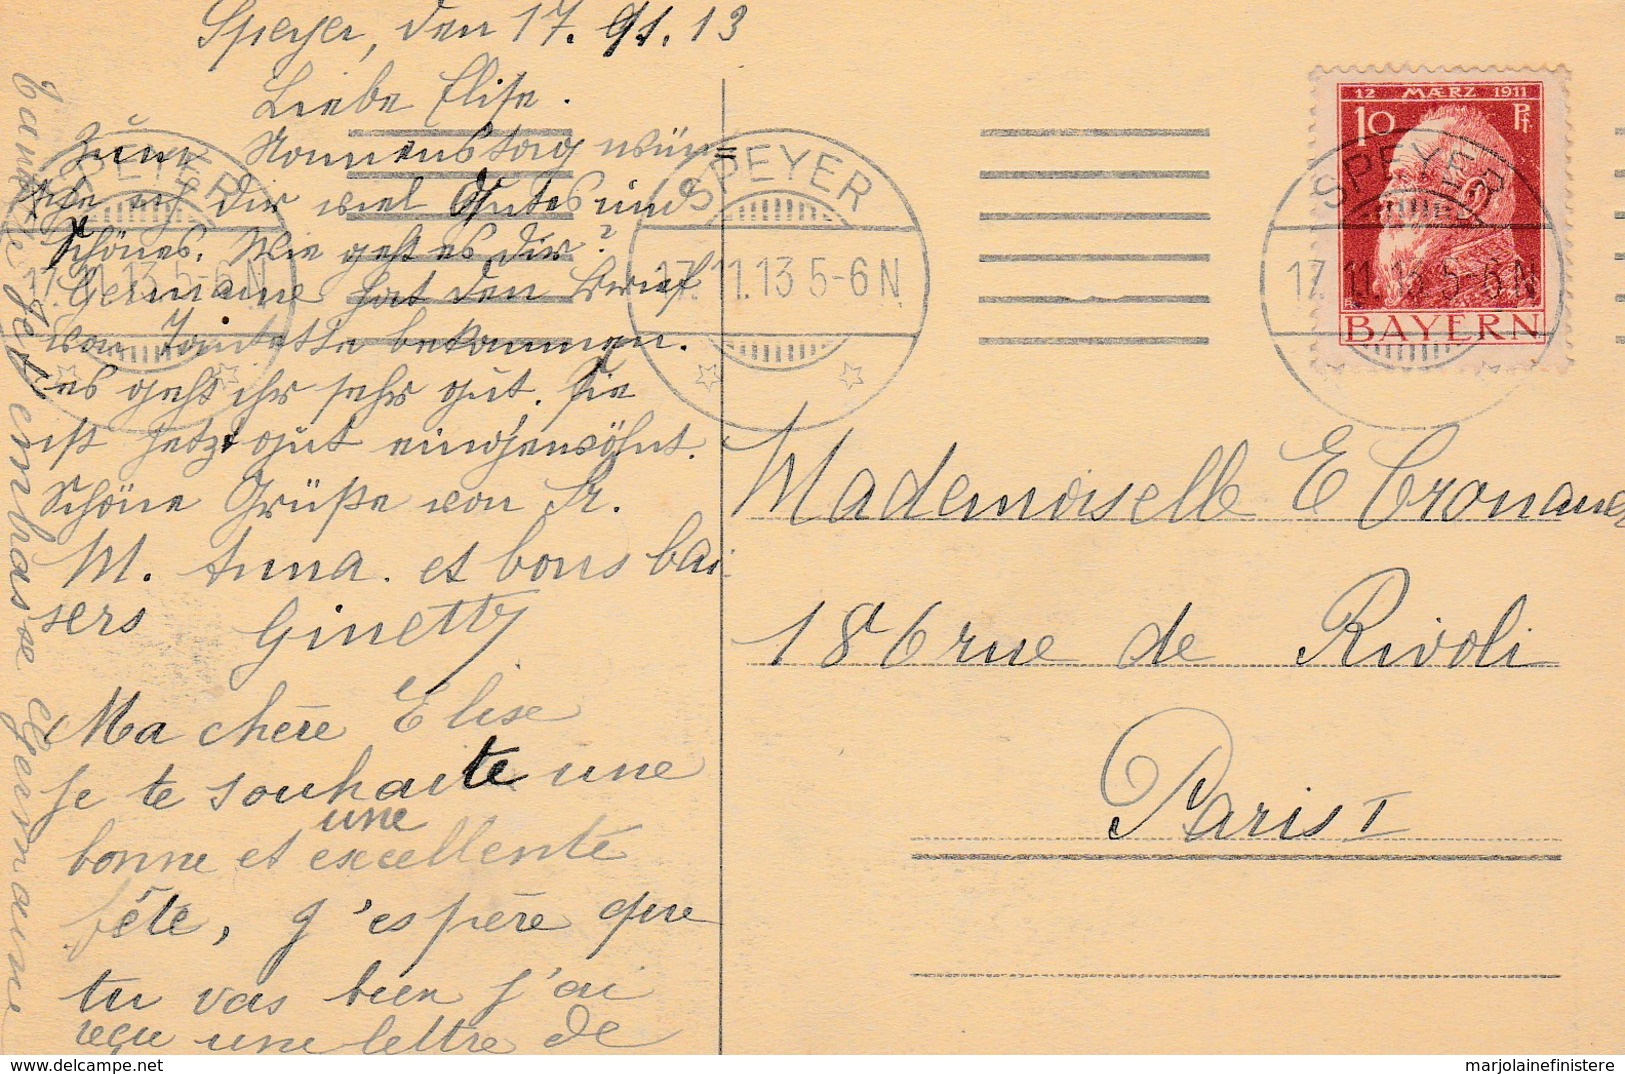 Speyer, den 17. 11. 13
Liebe Elise.
Zum Namenstag wün=
sche ich dir viel Gutes und
Schönes. Wie geht es dir?
Germaine hat den Brief
von Tantette bekommen.
es geht ihr sehr gut. Sie
ist jetzt gut eingewöhnt.
Schöne Grüße von Sr.
M. Anna. et bons bai
sers Ginetty
Ma chère Elise
je te souhaite une
une
bonne et excellente
fête, j'espère que
tu vas bien j'ai
reçu une lettre de
embrasse Germaine
SPEYER
17.11.13 5-6N
SPEYER
17.11.13 5-6N.
SPEYER
17.11.13 5-6N
12 MÆRZ 1911
10 Pf.
BAYERN
Mademoiselle E Cronauer
186 rue de Rivoli
Paris I
marjolainefinistere